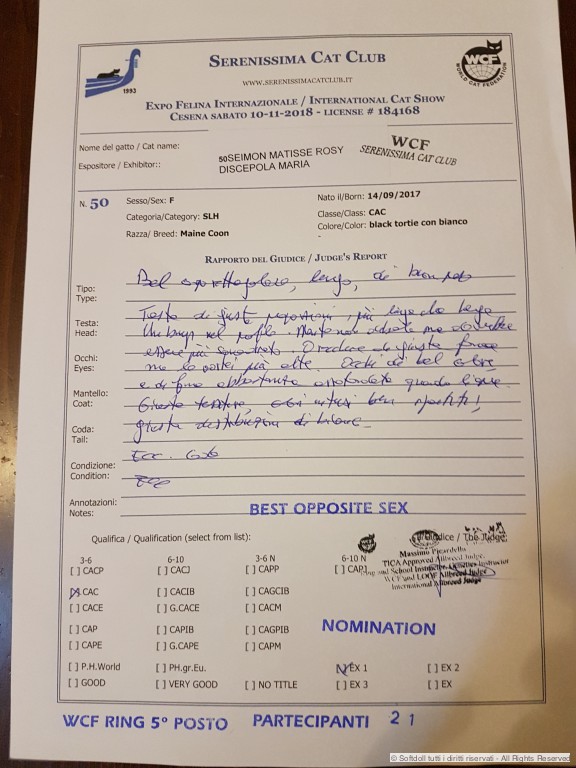 SERENISSIMA CAT CLUB
1993
WCF
WORLD CAT FEDERATION
WWW.SERENISSIMACATCLUB.IT
EXPO FELINA INTERNAZIONALE / INTERNATIONAL CAT SHOW
CESENA SABATO 10-11-2018 - LICENSE # 184168
Nome del gatto / Cat name:
50SEIMON MATISSE ROSY
WCF
SERENISSIMA CAT CLUB
Espositore / Exhibitor::
DISCEPOLA MARIA
N. 50
Sesso/Sex: F
Nato il/Born: 14/09/2017
Categoria/Category: SLH
Classe/Class: CAC
Razza/ Breed: Maine Coon
Colore/Color: black tortie con bianco
-
RAPPORTO DEL GIUDICE / JUDGE'S REPORT
Tipo:
Type:
Bel lungo, di buon
Testa:
Head:
Testa di giuste proporzioni, più lunga che larga
nel profilo. Mento ma dovrebbe
essere più squadrato. Orecchie di giusta
Occhi:
Eyes:
ma le vorrei più alte. Occhi di bel colore
e di forma abbastanza arrotondata
Mantello:
Coat:
Giusta tessitura, ben
Coda:
Tail:
giusta distribuzione di bianco
Condizione:
Condition:
Ecc.
Annotazioni:
Notes:
BEST OPPOSITE SEX
Qualifica / Qualification (select from list):
Giudice / The Judge:
Massimo Picardello
TICA Approved Allbreed Judge,
and School Instructor, Genetics Instructor
WCF and LOOF Allbreed Judge
International Allbreed Judge
3-6
6-10
3-6 N
6-10 N
[ ] CACP
[ ] CACJ
[ ] CAPP
[ ] CAPJ
[X] CAC
[ ] CACIB
[ ] CAGCIB
[ ] CACE
[ ] G.CACE
[ ] CACM
[ ] CAP
[ ] CAPIB
[ ] CAGPIB
NOMINATION
[ ] CAPE
[ ] G.CAPE
[ ] CAPM
[ ] P.H.World
[ ] PH.gr.Eu.
[X] EX 1
[ ] EX 2
[ ] GOOD
[ ] VERY GOOD
[ ] NO TITLE
[ ] EX 3
[ ] EX
WCF RING 5° POSTO PARTECIPANTI 21
© Softdoll tutti i diritti riservati - All Rights Reserved